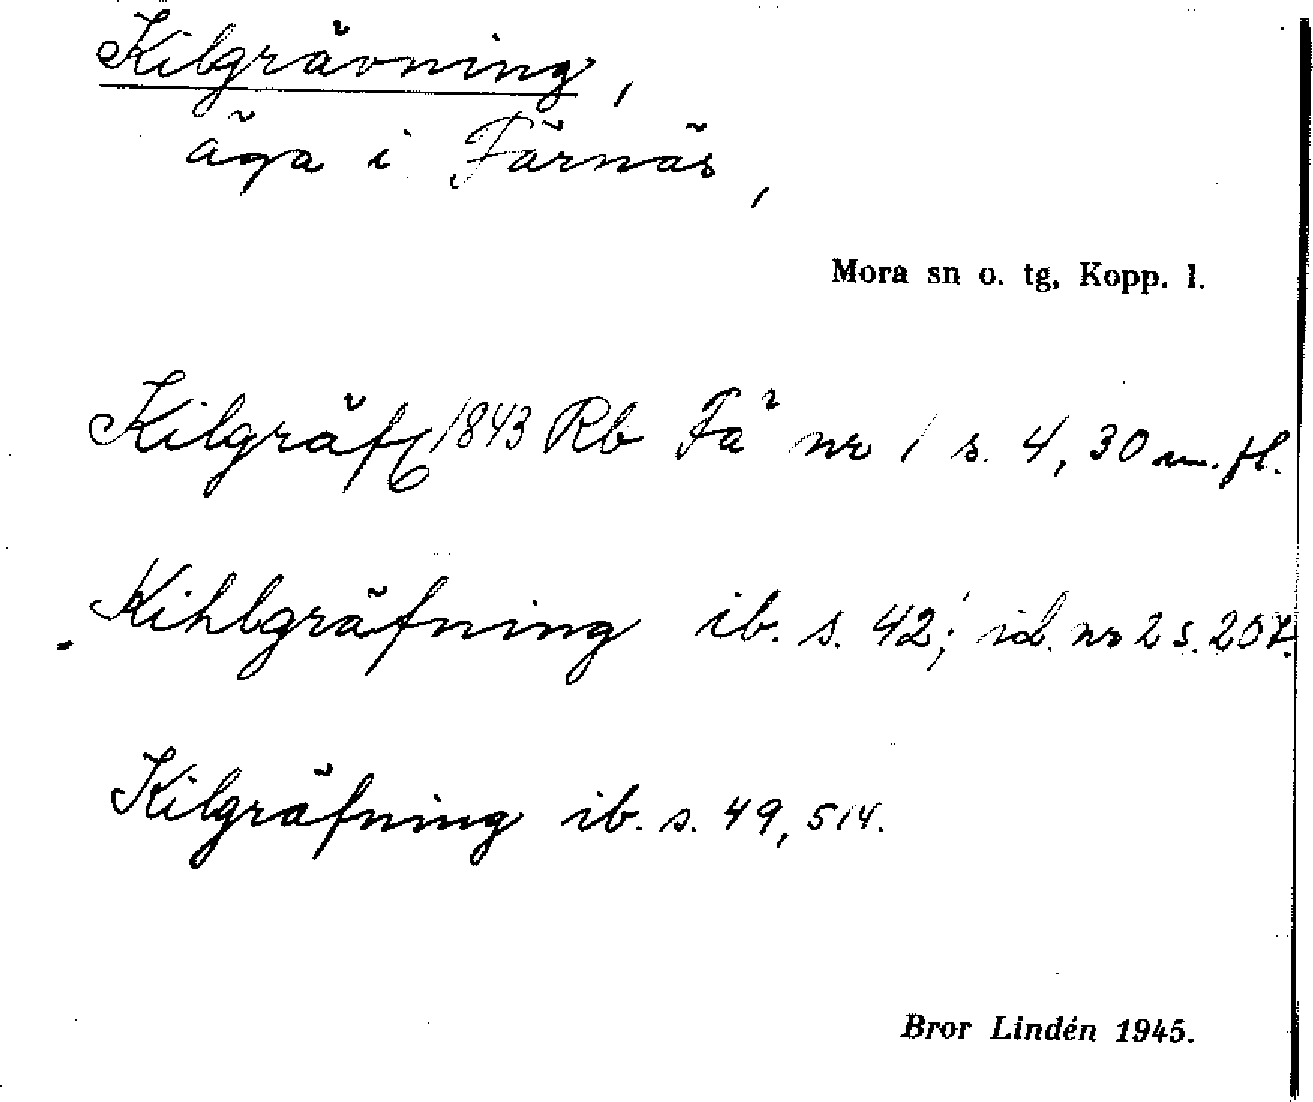 Kilgrävning,
äga i Färnäs,
Mora sn o. tg, Kopp. l.
Kilgräf 1843 Rb Fä nr 1 s. 4, 30 m. fl.
Kihlgräfning ib. s. 42; id. nr 2 s. 207.
Kilgräfning ib. s. 49, 514.
Bror Lindén 1945.